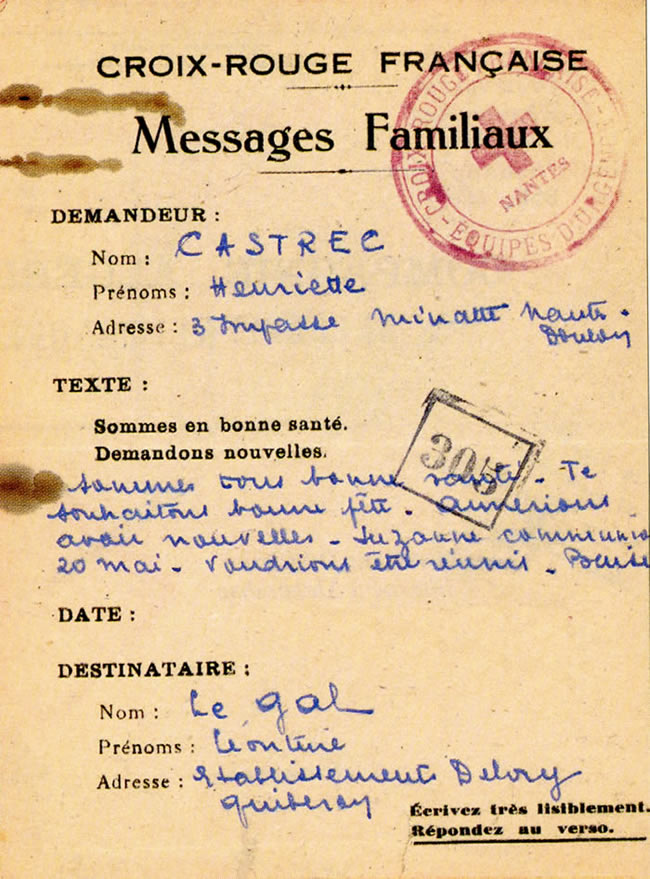 CROIX-ROUGE FRANÇAISE
Messages Familiaux
CROIX-ROUGE FRANÇAISE - ÉQUIPES D'URGENCE
NANTES
DEMANDEUR :
Nom : CASTREC
Prénoms : Henriette
Adresse : 3 Impasse Minatte Nantes.
Doulon
TEXTE :
Sommes en bonne santé.
Demandons nouvelles.
305
sommes tous bonne santé - Te
souhaitons bonne fête - aimerions
avoir nouvelles - Suzanne communio
20 mai - Voudrions être réunis - Baise
DATE :
DESTINATAIRE :
Nom : Le Gal
Prénoms : Léontine
Adresse : Etablissements Delory
Quiberon
Écrivez très lisiblement.
Répondez au verso.